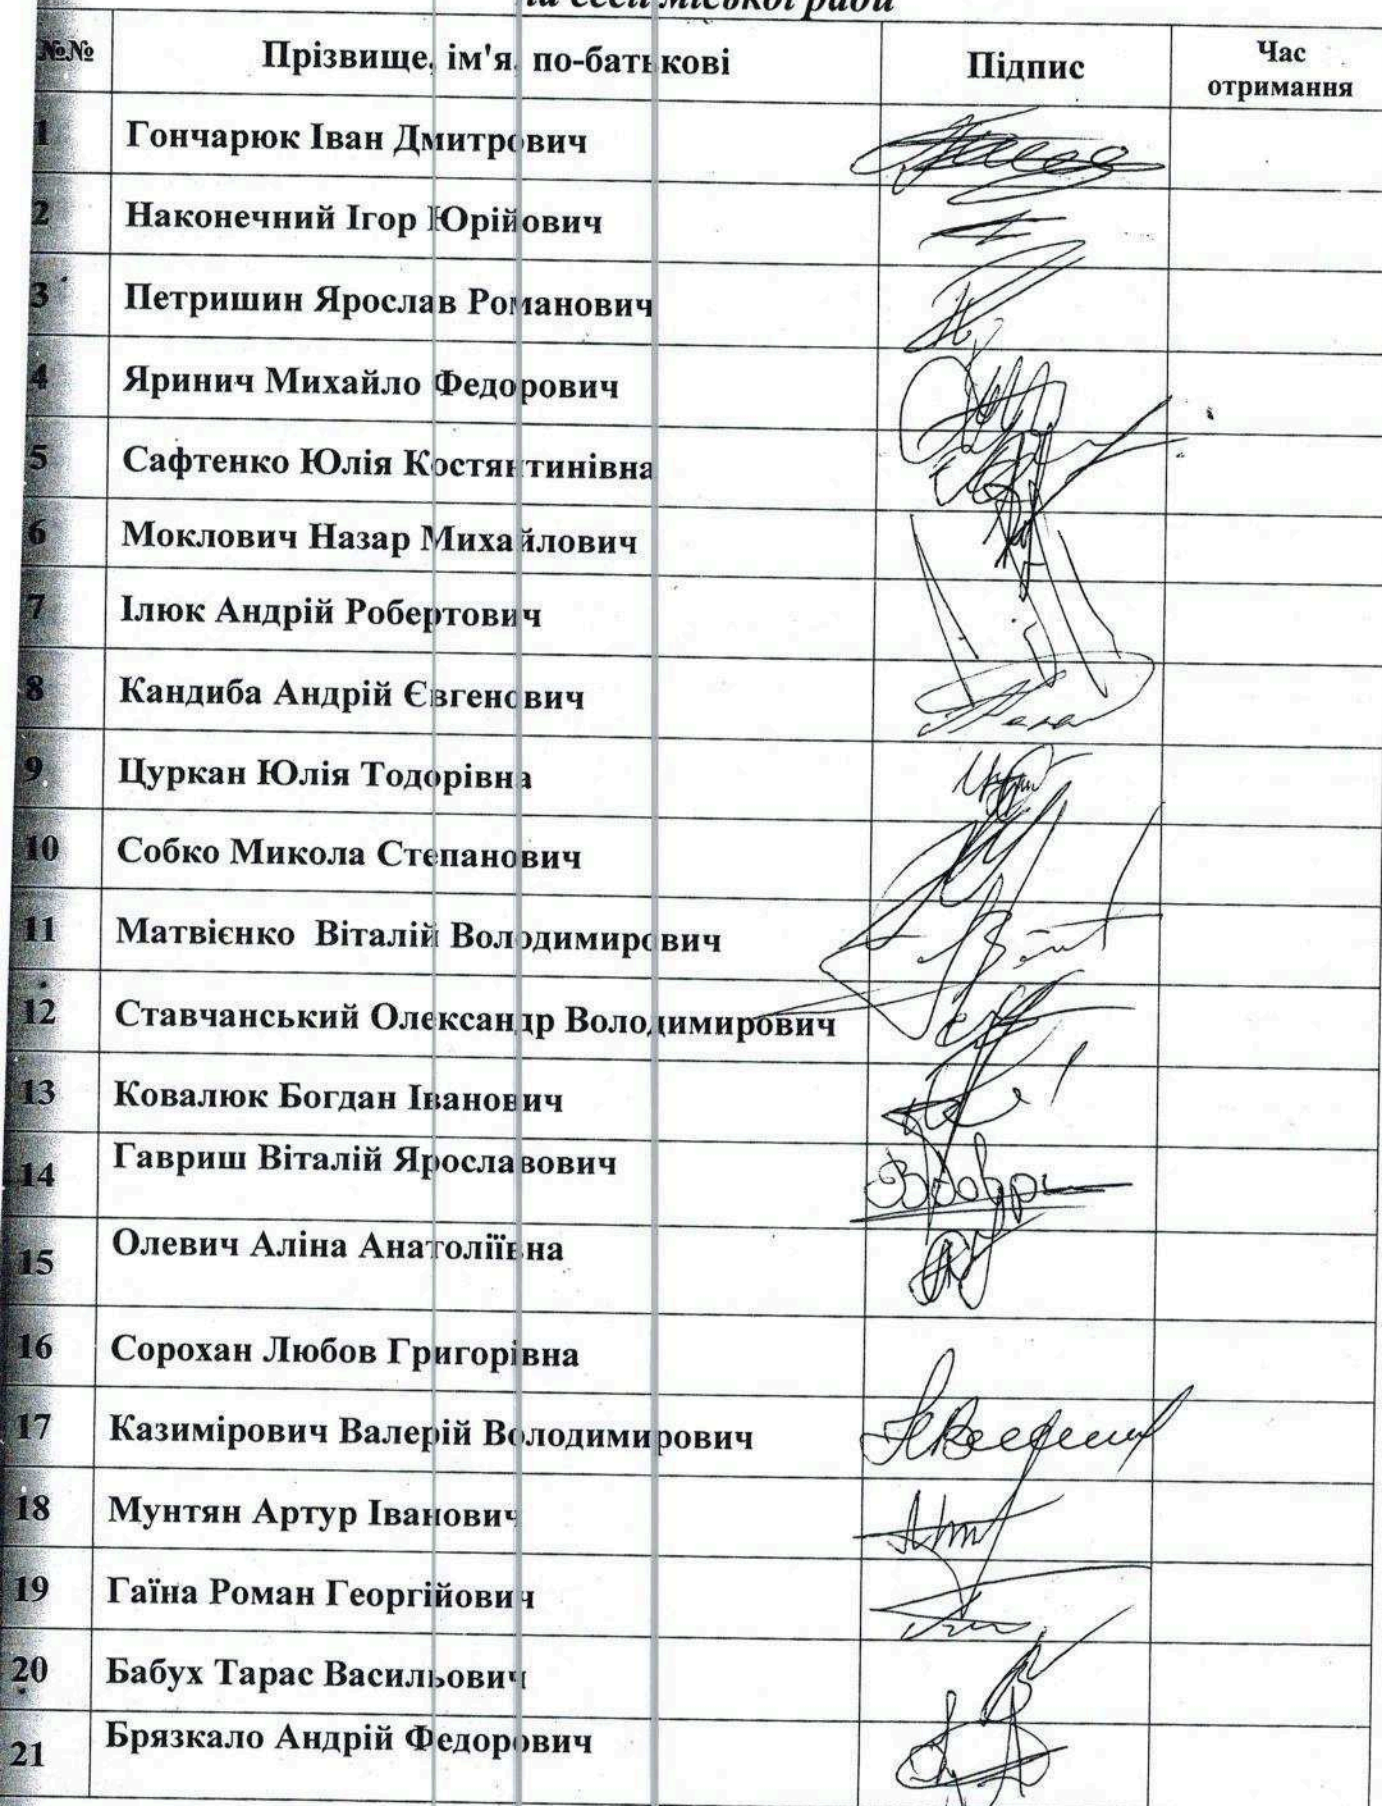 на сесії міської ради
№№ Прізвище, ім'я, по-батькові Підпис Час отримання
1 Гончарюк Іван Дмитрович
2 Наконечний Ігор Юрійович
3 Петришин Ярослав Романович
4 Яринич Михайло Федорович
5 Сафтенко Юлія Костянтинівна
6 Моклович Назар Михайлович
7 Ілюк Андрій Робертович
8 Кандиба Андрій Євгенович
9 Цуркан Юлія Тодорівна
10 Собко Микола Степанович
11 Матвієнко Віталій Володимирович
12 Ставчанський Олександр Володимирович
13 Ковалюк Богдан Іванович
14 Гавриш Віталій Ярославович
15 Олевич Аліна Анатоліївна
16 Сорохан Любов Григорівна
17 Казимірович Валерій Володимирович
18 Мунтян Артур Іванович
19 Гаїна Роман Георгійович
20 Бабух Тарас Васильович
21 Брязкало Андрій Федорович